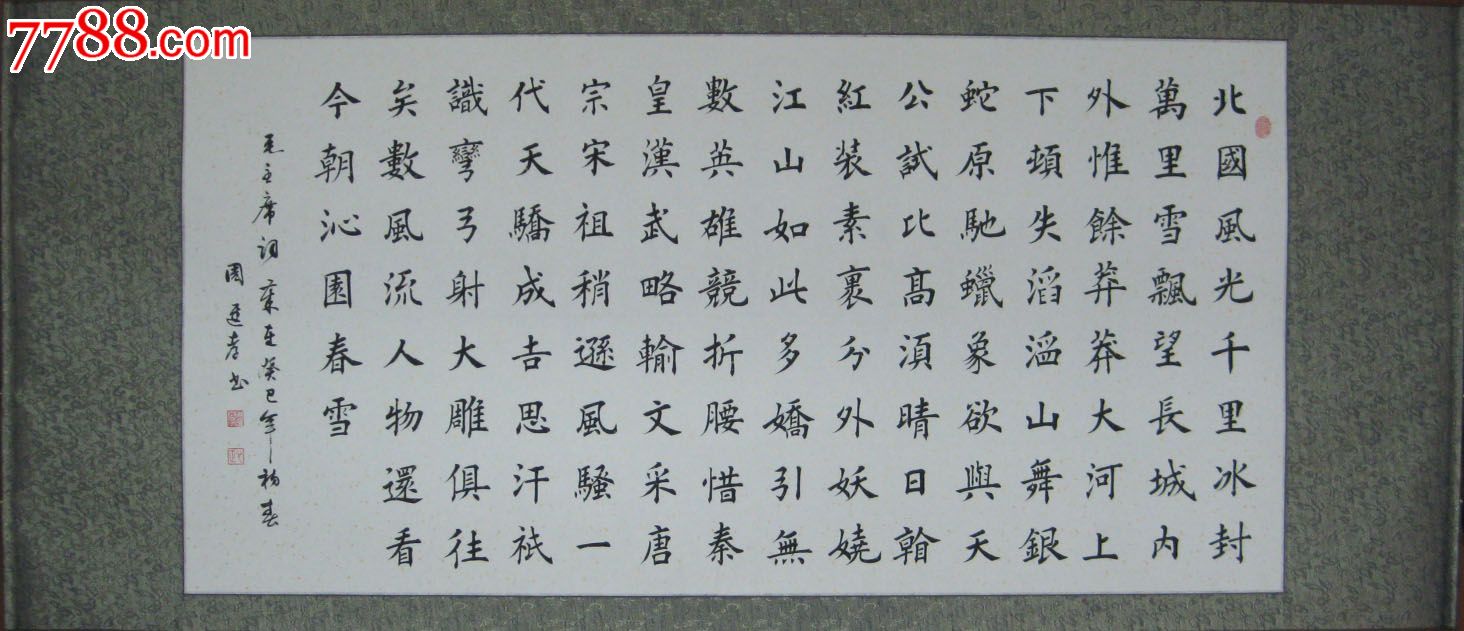 7788.com
北國風光千里冰封
萬里雪飄望長城內
外惟餘莽莽大河上
下頓失滔滔山舞銀
蛇原馳蠟象欲與天
公試比高須晴日看
紅装素裹分外妖嬈
江山如此多嬌引無
數英雄競折腰惜秦
皇漢武略輸文采唐
宗宋祖稍遜風騷一
代天驕成吉思汗衹
識彎弓射大雕俱往
矣數風流人物還看
今朝沁園春雪
毛主席詞 歲在癸巳年初春
周 書